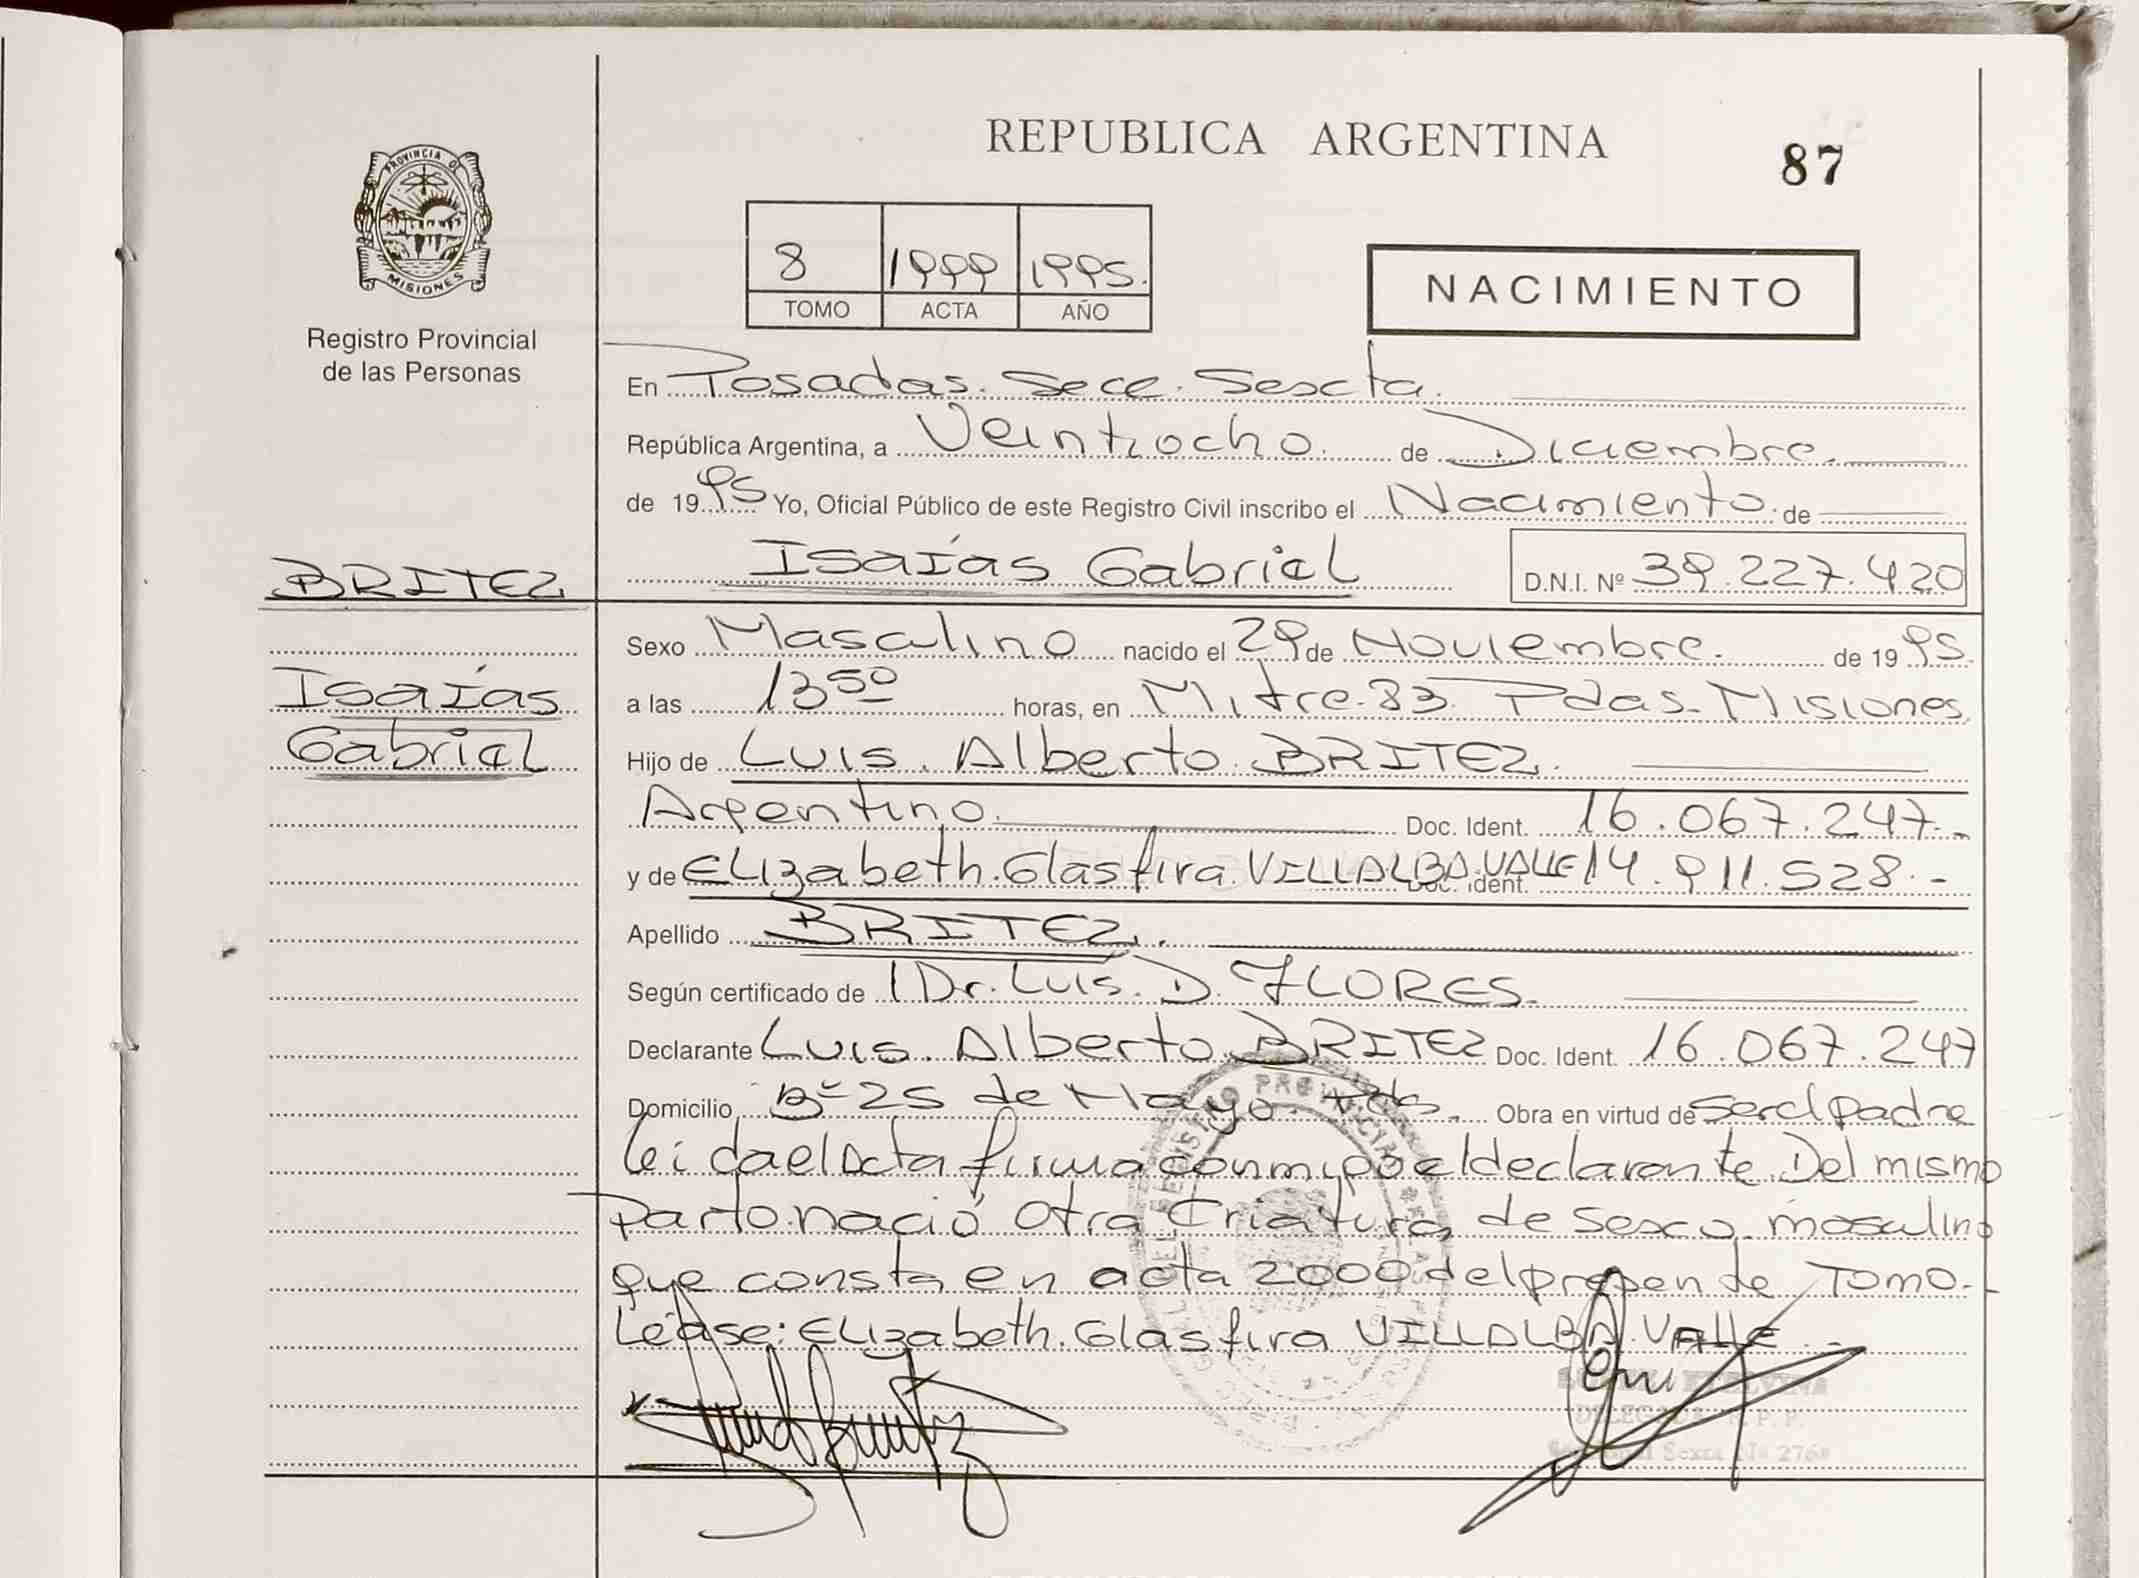 REPUBLICA ARGENTINA
87
PROVINCIA DE
MISIONES
Registro Provincial
de las Personas
8 1999 1995.
TOMO ACTA AÑO
NACIMIENTO
En Posadas. Secc. Sexta.
República Argentina, a Veintiocho. de Diciembre.
de 1995 Yo, Oficial Público de este Registro Civil inscribo el Nacimiento. de
Isaías Gabriel D.N.I. Nº 39.227.420
BRITEZ
Isaías
Gabriel
Sexo Masculino nacido el 29 de Noviembre. de 1995.
a las 13⁵⁰ horas, en Mitre. 83. Pdas. Misiones.
Hijo de Luis. Alberto. BRITEZ.
Argentino. Doc. Ident. 16.067.247.-
y de Elizabeth. Glasfira. VILLALBA. VALLE Doc. Ident. 14.911.528.-
Apellido BRITEZ.
Según certificado de Dr. Luis. D. FLORES.
Declarante Luis. Alberto. BRITEZ Doc. Ident. 16.067.247
Domicilio Bº 25 de Mayo. Pdas. Obra en virtud de ser el padre
leída el acta firma conmigo el declarante. Del mismo
parto. nació otra criatura de sexo masculino
que consta en acta 2000 del presente Tomo.-
Léase: Elizabeth. Glasfira VILLALBA. VALLE.
DELEGADA R.P.P.
Sexta Nº 276